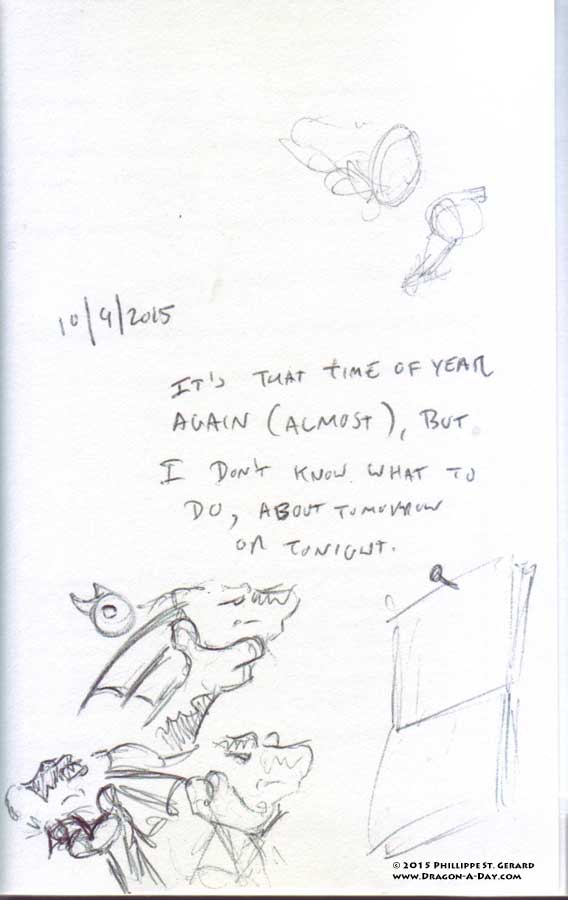 10/9/2015
IT'S THAT TIME OF YEAR
AGAIN (ALMOST), BUT
I DON'T KNOW WHAT TO
DO, ABOUT TOMORROW
OR TONIGHT.
© 2015 PHILLIPPE ST. GERARD
WWW.DRAGON-A-DAY.COM